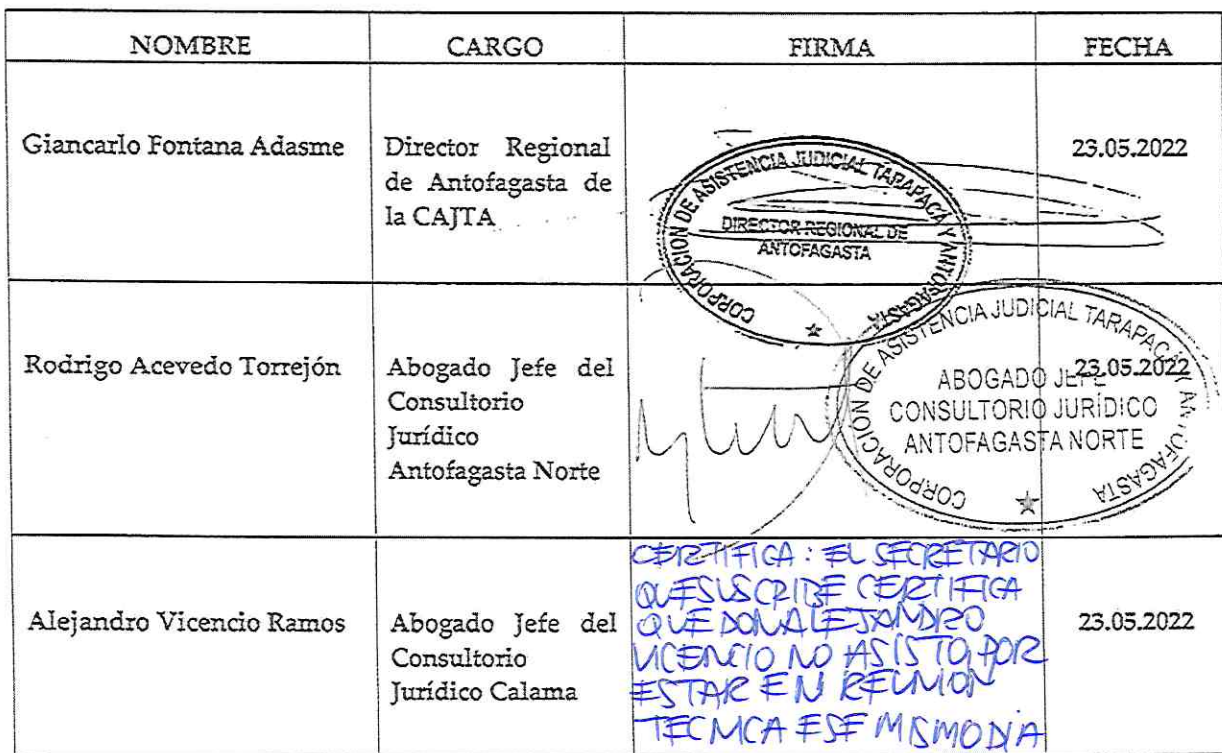 NOMBRE CARGO FIRMA FECHA
Giancarlo Fontana Adasme
Director Regional
de Antofagasta de
la CAJTA
CORPORACION DE ASISTENCIA JUDICIAL TARAPACÁ Y ANTOFAGASTA
DIRECTOR REGIONAL DE
ANTOFAGASTA
23.05.2022
Rodrigo Acevedo Torrejón
Abogado Jefe del
Consultorio
Jurídico
Antofagasta Norte
CORPORACIÓN DE ASISTENCIA JUDICIAL TARAPACÁ Y ANTOFAGASTA
ABOGADO JEFE
CONSULTORIO JURÍDICO
ANTOFAGASTA NORTE
23.05.2022
Alejandro Vicencio Ramos
Abogado Jefe del
Consultorio
Jurídico Calama
CERTIFICA: EL SECRETARIO
QUE SUSCRIBE CERTIFICA
QUE DON ALEJANDRO
VICENCIO NO ASISTO POR
ESTAR EN REUNION
TECNICA ESE MISMO DIA
23.05.2022